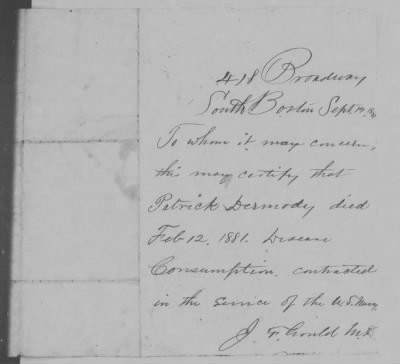 418 Broadway
South Boston Sept. 19
To whom it may concern,
this may certify that
Patrick Dermody died
Feb 12, 1881. Disease
Consumption, contracted
in the service of the U.S. Navy.
J. F. Gould M.D.